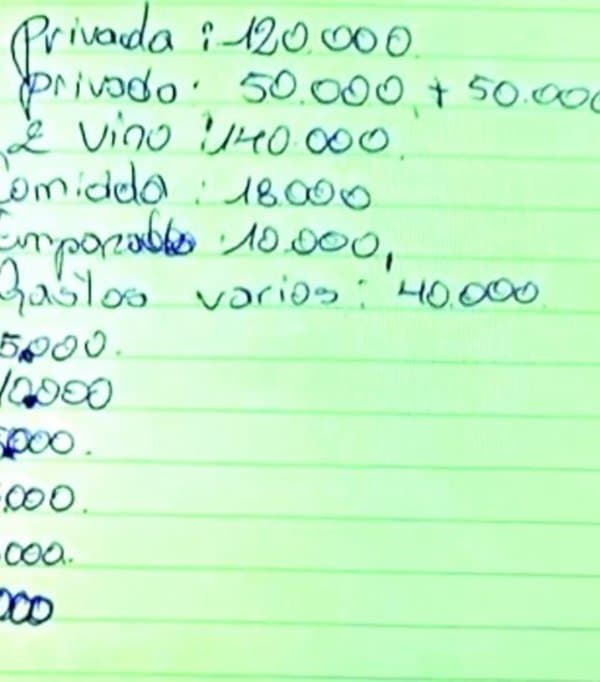 privada : 120.000
privado : 50.000 + 50.000
2 Vino : 140.000.
Comidda : 18.000
: 10.000,
Gastos varios : 40.000
5.000.
10.000
.000.
.000.
000.
000